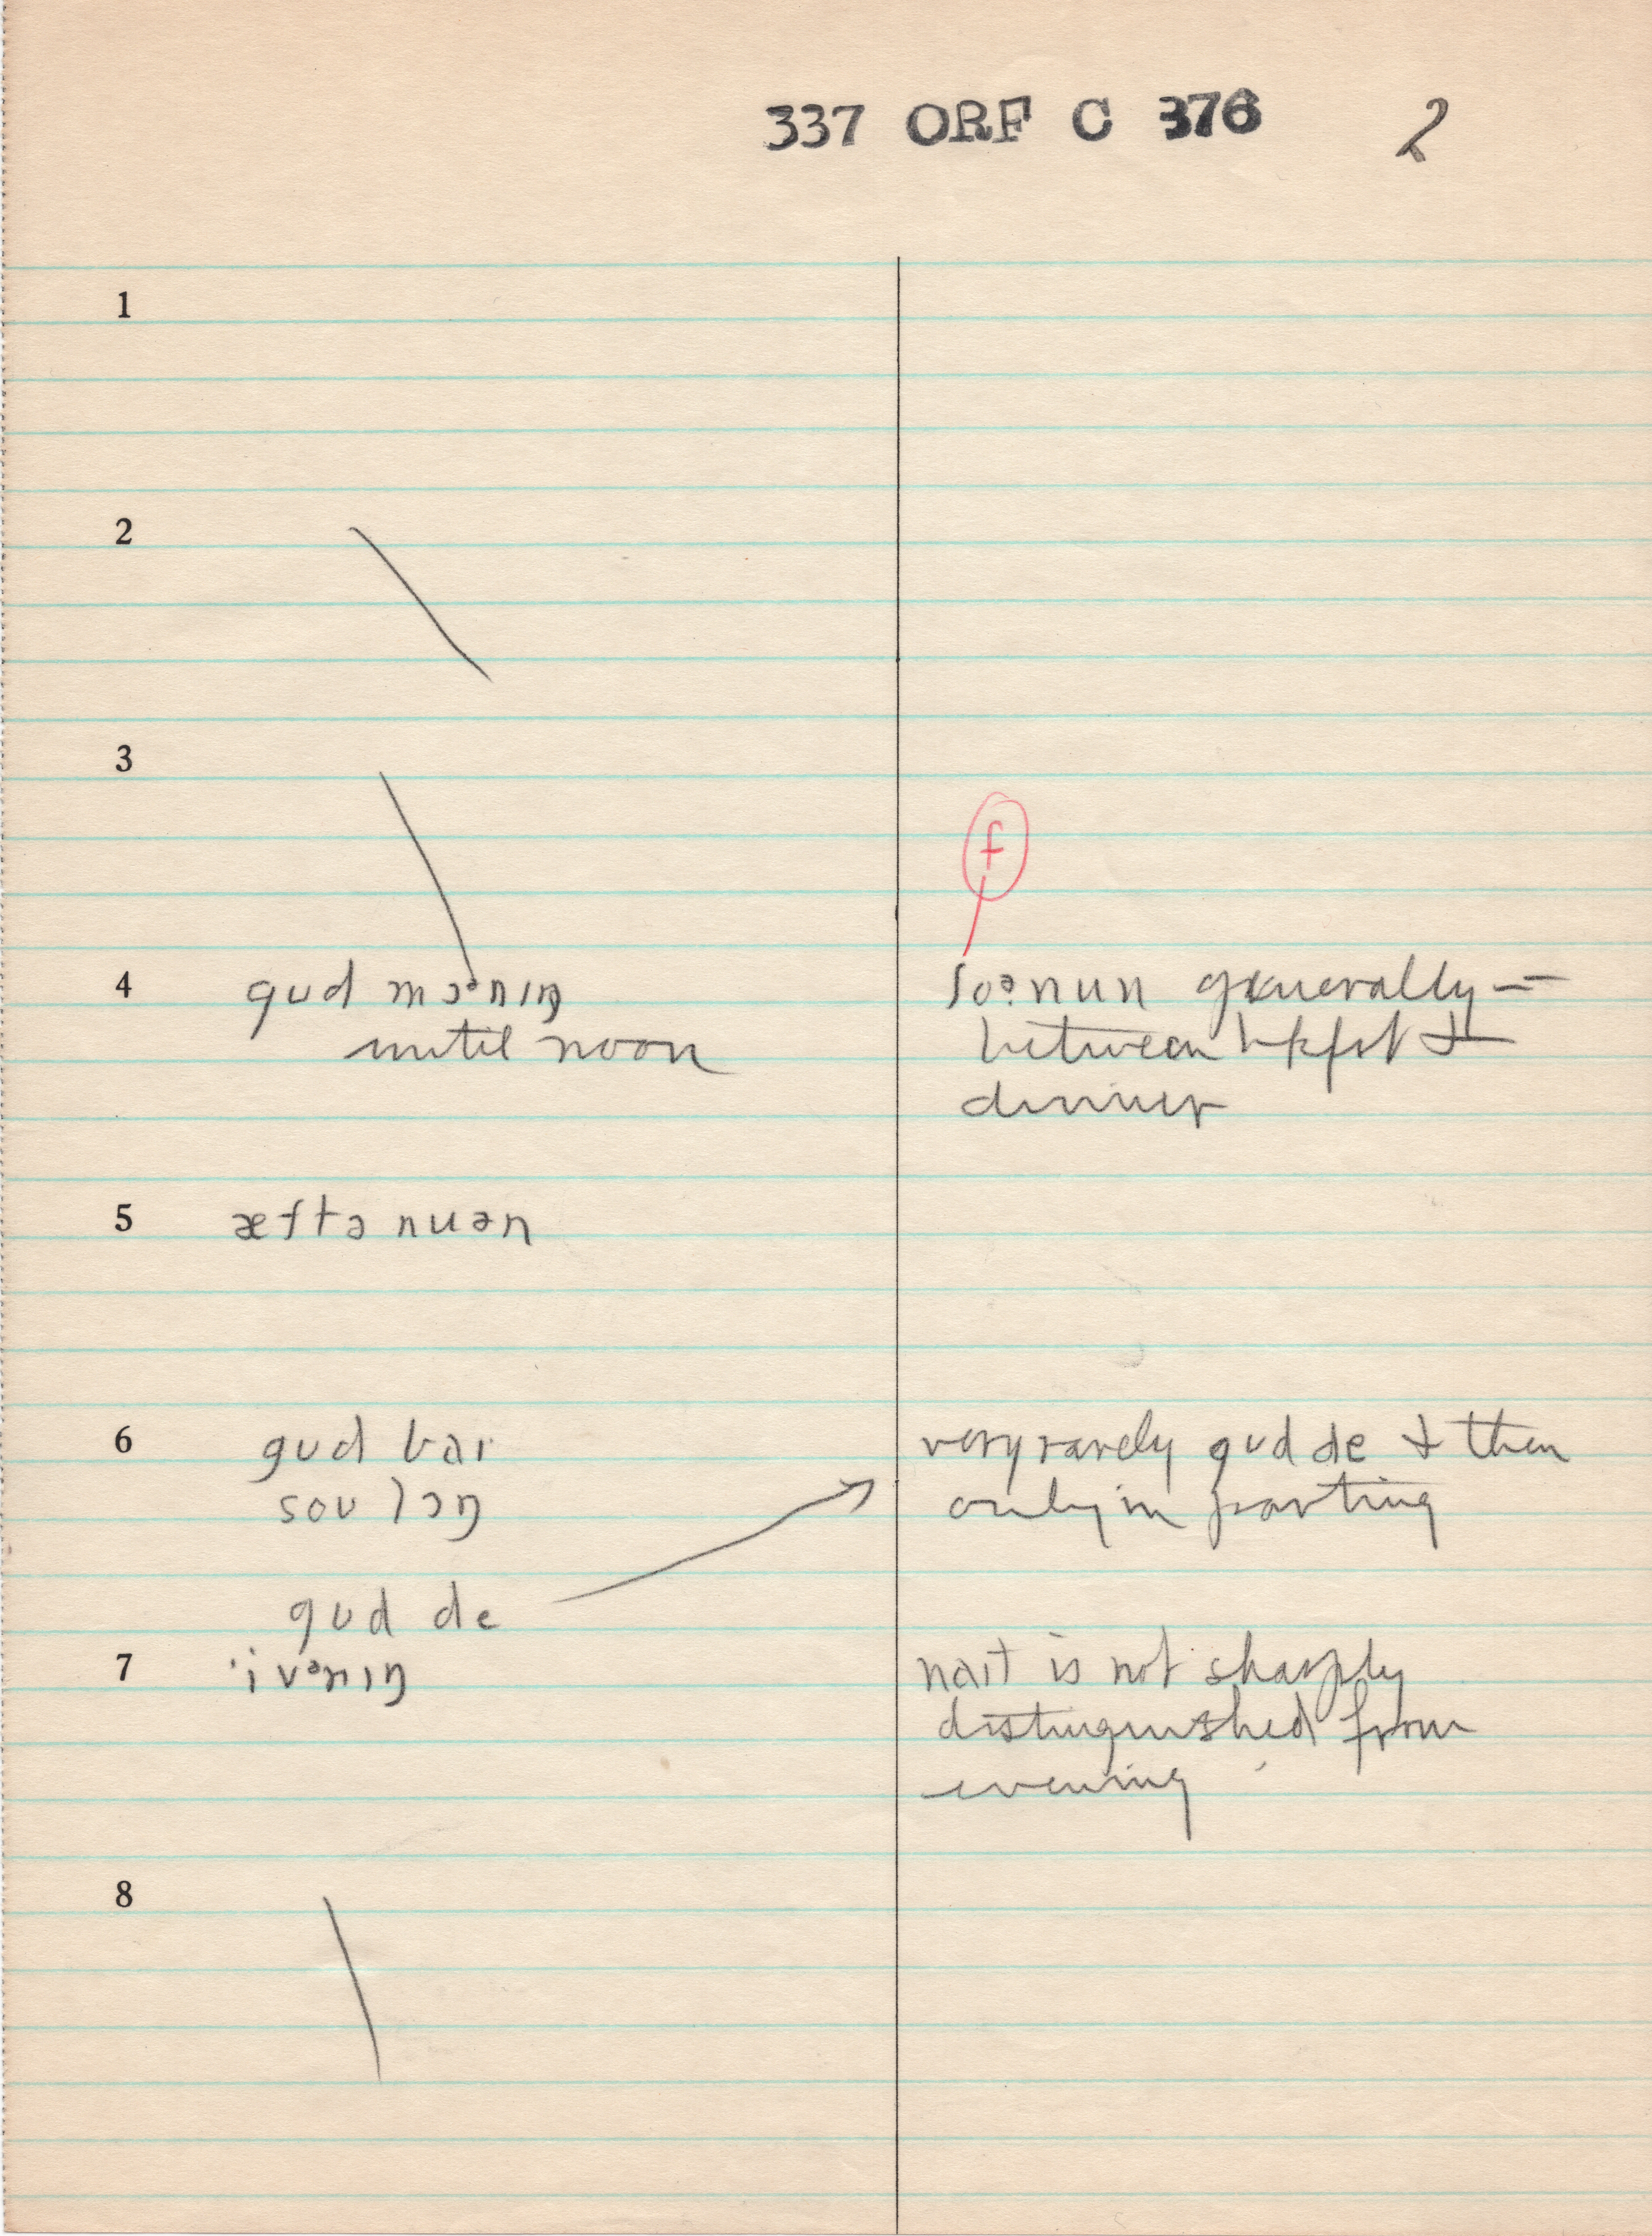 337 ORF C 376 2
1
2
3
f
4 gud mɔᵊnɪŋ foᵊnun generally —
until noon between bkfst &
dinner
5 æftə nuən
6 gud baɪ very rarely gud de & then
soʊ lɔŋ only in parting
gud de
7 'ivᵊnɪŋ naɪt is not sharply
distinguished from
evening
8